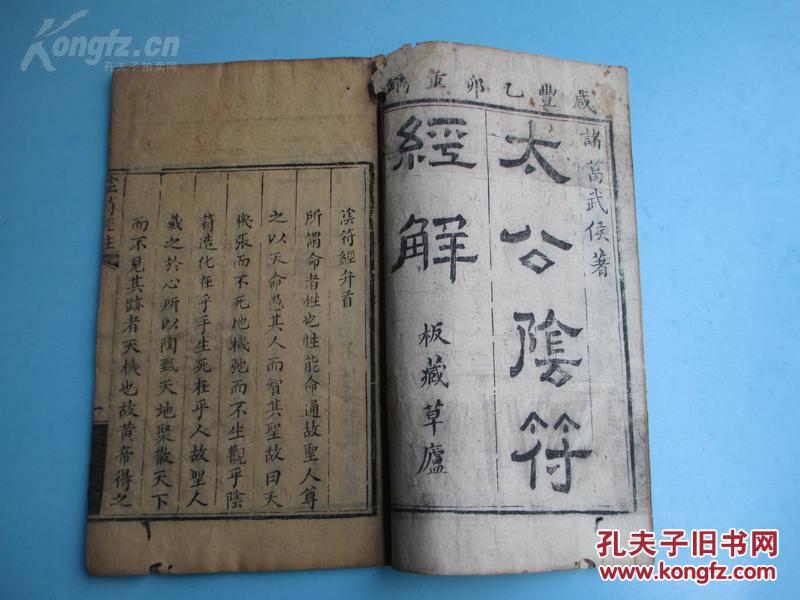 咸豐乙卯重鐫
諸葛武侯著
太公陰符
經解
板藏草廬
陰符經弁首
所謂命者性也性能命通故聖人尊
之以天命愚其人而智其聖故曰天
機張而不死地機弛而不生觀乎陰
符造化在乎手生死在乎人故聖人
藏之於心所以陶甄天地聚散天下
而不見其跡者天機也故黃帝得之
Kongfz.cn
孔夫子卖网
孔夫子旧书网
www.kongfz.com